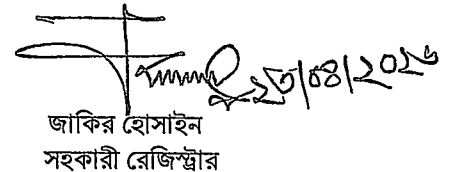 ২৩/০৪/২০২৬
জাকির হোসাইন
সহকারী রেজিস্ট্রার